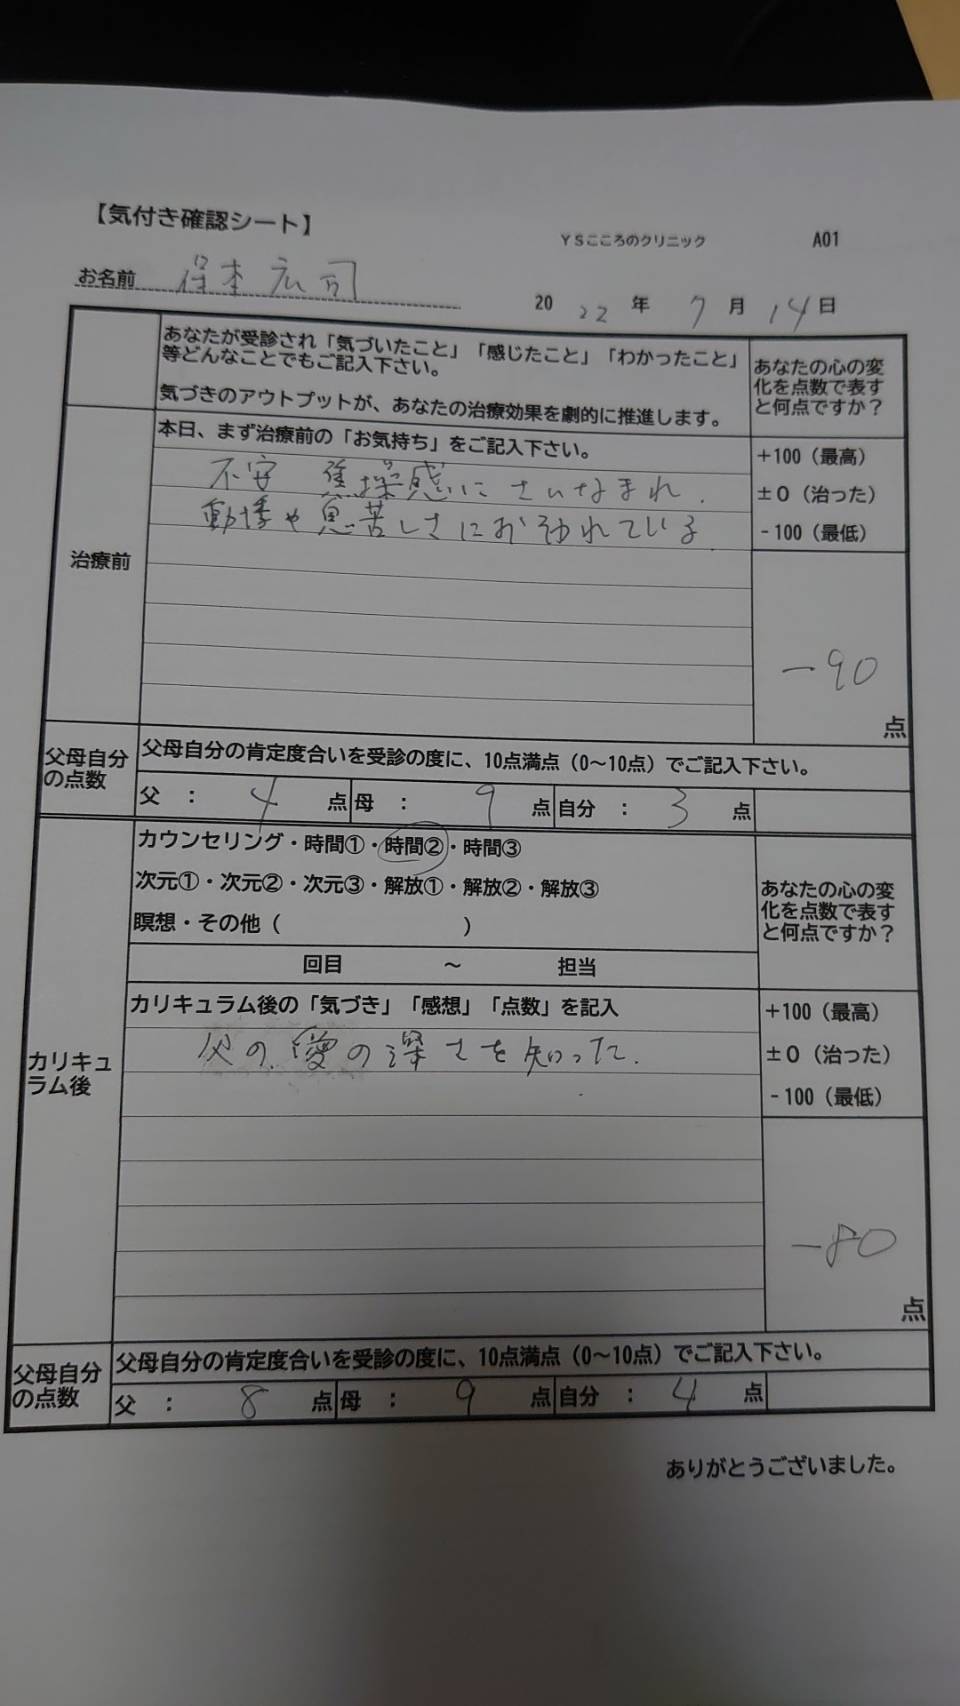 【気付き確認シート】
YSこころのクリニック A01
お名前 保本広司
20 22 年 7 月 14 日
あなたが受診され「気づいたこと」「感じたこと」「わかったこと」
等どんなことでもご記入下さい。
気づきのアウトプットが、あなたの治療効果を劇的に推進します。
あなたの心の変
化を点数で表す
と何点ですか？
治療前
本日、まず治療前の「お気持ち」をご記入下さい。
不安 焦燥感にさいなまれ.
動悸や息苦しさにおそわれている.
+100（最高）
±0（治った）
-100（最低）
-90
点
父母自分
の点数
父母自分の肯定度合いを受診の度に、10点満点（0～10点）でご記入下さい。
父 ： 4 点 母 ： 9 点 自分 ： 3 点
カリキュ
ラム後
カウンセリング・時間①・時間②・時間③
次元①・次元②・次元③・解放①・解放②・解放③
瞑想・その他（ ）
回目 ～ 担当
あなたの心の変
化を点数で表す
と何点ですか？
カリキュラム後の「気づき」「感想」「点数」を記入
父の愛の深さを知った.
+100（最高）
±0（治った）
-100（最低）
-80
点
父母自分
の点数
父母自分の肯定度合いを受診の度に、10点満点（0～10点）でご記入下さい。
父 ： 8 点 母 ： 9 点 自分 ： 4 点
ありがとうございました。